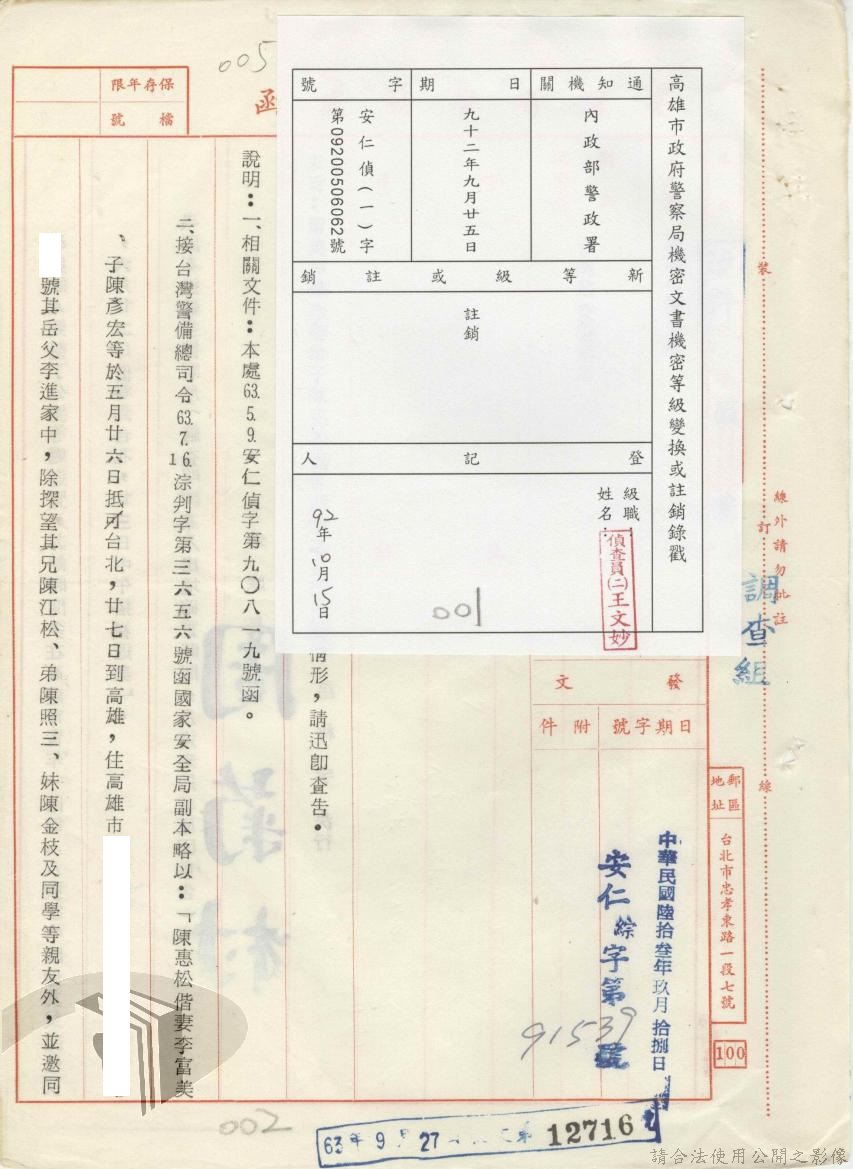 005
保存年限
檔號
函
高雄市政府警察局機密文書機密等級變換或註銷錄戳
通知機關
日期
字號
內政部警政署
九十二年九月廿五日
安仁偵(一)字
第09200506062號
新等級或註銷
註銷
登記人
級職：
姓名：
偵查員(二)王文妙
92年10月15日
001
裝
訂
線
線外請勿批註
調查組
郵區
地址
台北市忠孝東路一段七號
100
發文
日期字號
附件
中華民國陸拾叁年玖月拾捌日
安仁綜字第
91539
號
情形，請迅卽查告。
說明：一、相關文件：本處63.5.9.安仁偵字第九〇八一九號函。
二、接台灣警備總司令63.7.16.淙判字第三六五六號函國家安全局副本略以：「陳惠松偕妻李富美
、子陳彥宏等於五月廿六日抵台北，廿七日到高雄，住高雄市
號其岳父李進家中，除探望其兄陳江松、弟陳照三、妹陳金枝及同學等親友外，並邀同
002
63年9月27
12716
請合法使用公開之影像